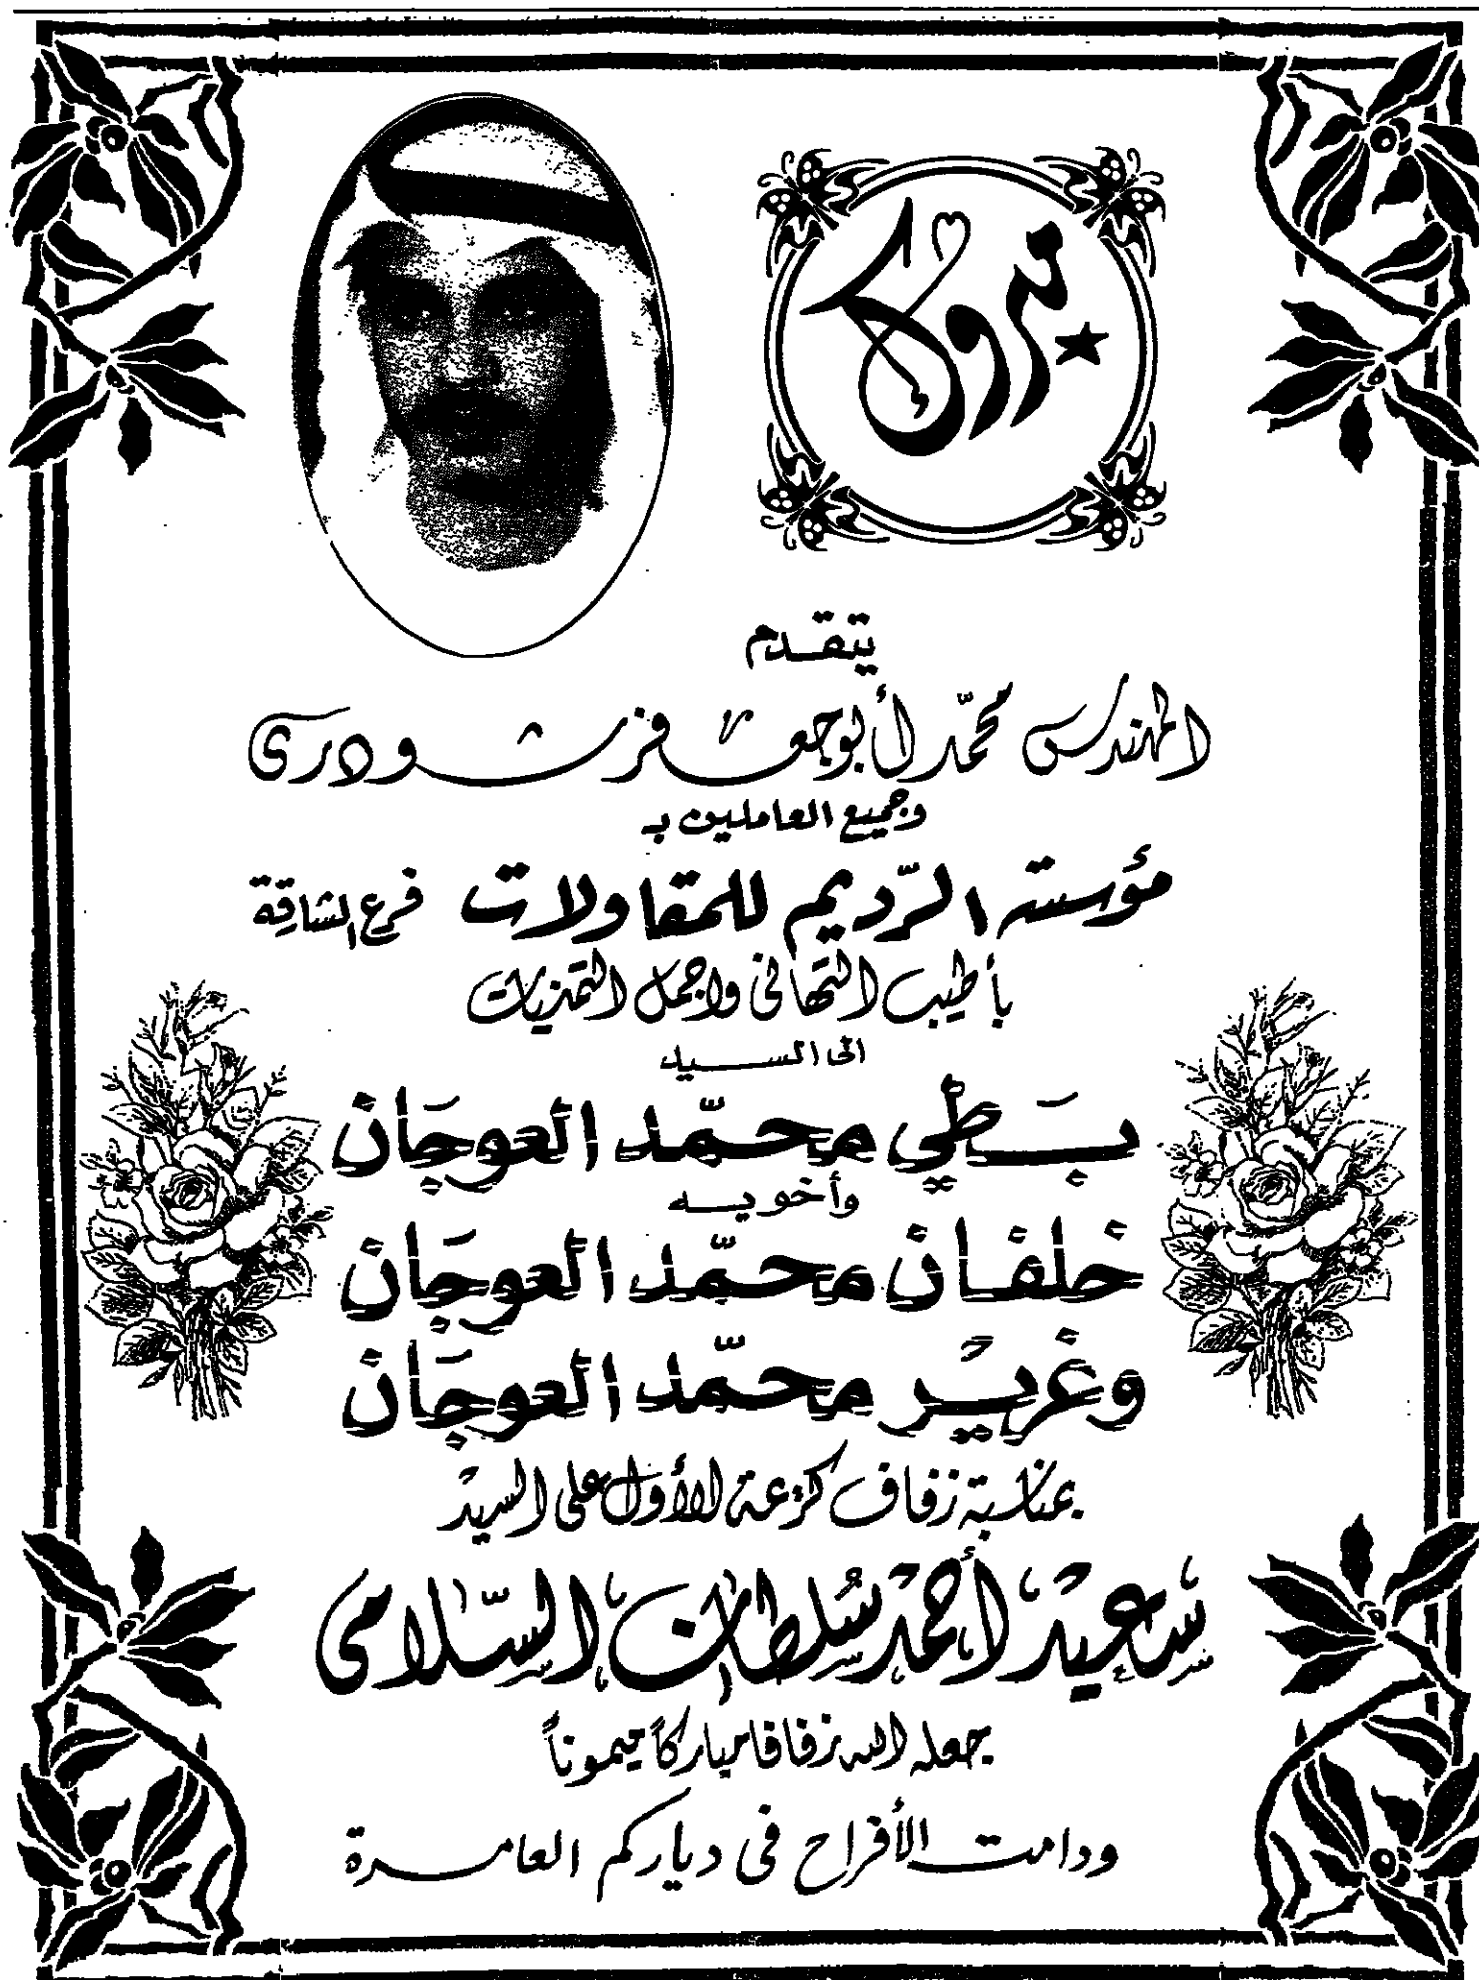 مبروك
يتقدم
المهندس محمّد أبوجعفر شودرى
وجميع العاملين بـ
مؤسسة الرّديم للمقاولات فرع الشارقة
بأطيب التهانى واجمل التمنيات
الى السيد
بـطي محمّد العوجان
وأخويه
خلفان محمّد العوجان
وغرير محمّد العوجان
بمناسبة زفاف كريمة الأول على السيد
سعيد أحمد سلطان السّلامى
جعله الله زفافا مباركاً ميموناً
ودامت الأفراح فى دياركم العامرة